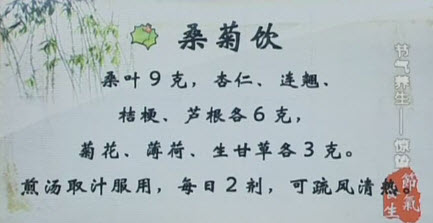 桑菊饮
桑叶9克，杏仁、连翘、
桔梗、芦根各6克，
菊花、薄荷、生甘草各3克。
煎汤取汁服用，每日2剂，可疏风清热。
节气养生——惊蛰
節氣
养生